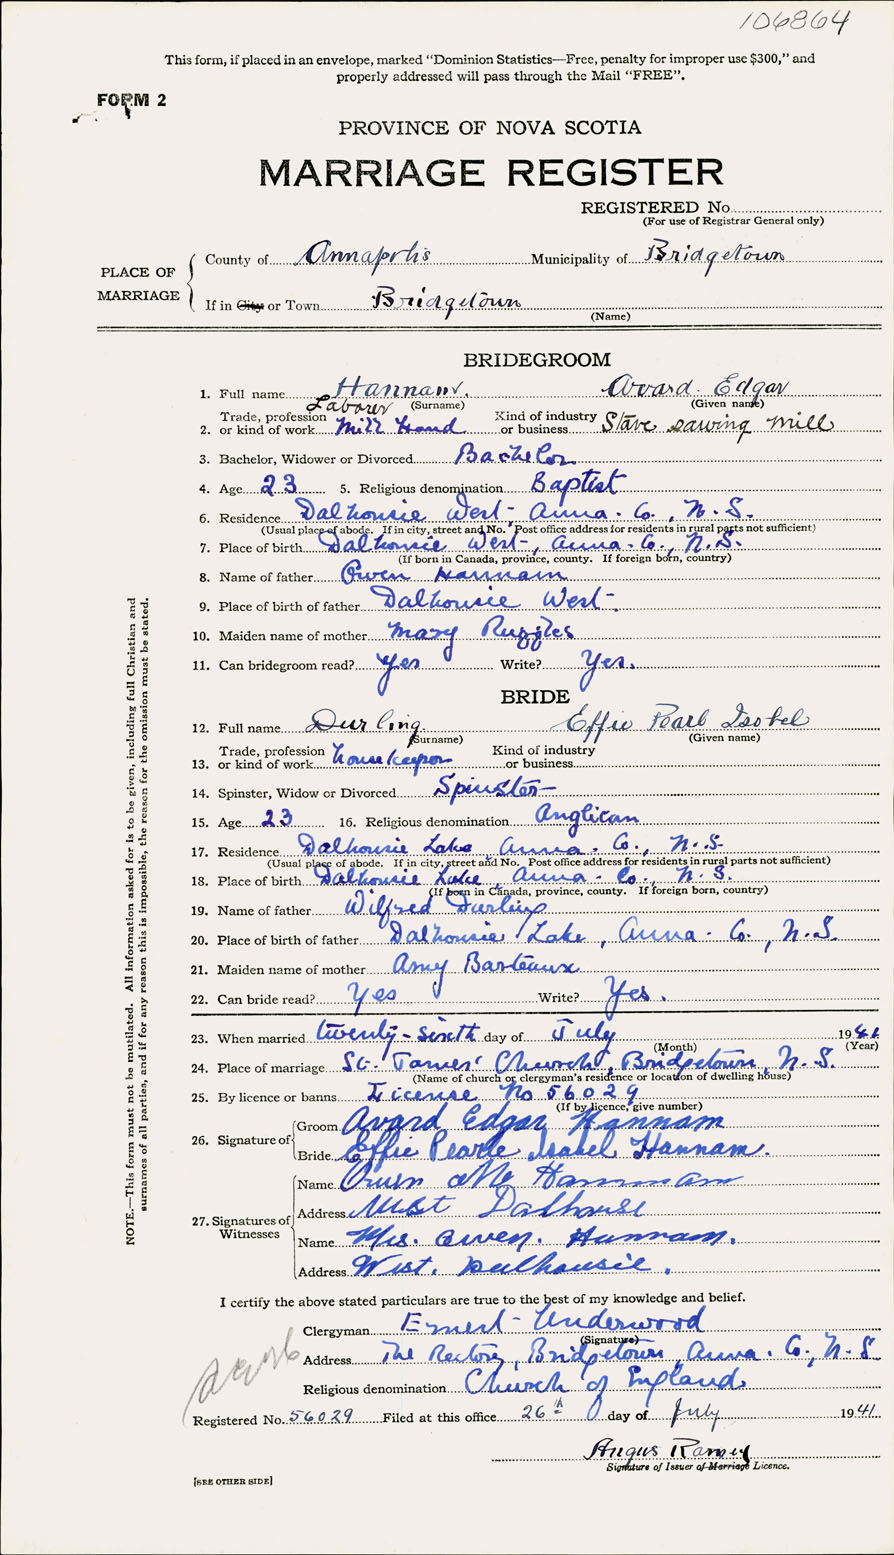 106864
This form, if placed in an envelope, marked “Dominion Statistics—Free, penalty for improper use $300,” and
properly addressed will pass through the Mail “FREE”.
FORM 2
PROVINCE OF NOVA SCOTIA
MARRIAGE REGISTER
REGISTERED No.
(For use of Registrar General only)
PLACE OF MARRIAGE
County of Annapolis Municipality of Bridgetown
If in City or Town Bridgetown
(Name)
BRIDEGROOM
1. Full name Hannam. Avard Edgar
(Surname) (Given name)
Labourer
2. Trade, profession or kind of work Mill Hand Kind of industry or business Stave sawing mill
3. Bachelor, Widower or Divorced Bachelor
4. Age 23 5. Religious denomination Baptist
6. Residence Dalhousie West, Anna. Co., N.S.
(Usual place of abode. If in city, street and No. Post office address for residents in rural parts not sufficient)
7. Place of birth Dalhousie West, Anna. Co., N.S.
(If born in Canada, province, county. If foreign born, country)
8. Name of father Owen Hannam
9. Place of birth of father Dalhousie West.
10. Maiden name of mother Mary Ruggles
11. Can bridegroom read? Yes Write? Yes.
BRIDE
12. Full name Durling. Effie Pearl Isobel
(Surname) (Given name)
13. Trade, profession or kind of work housekeeper Kind of industry or business
14. Spinster, Widow or Divorced Spinster
15. Age 23 16. Religious denomination Anglican
17. Residence Dalhousie Lake, Anna. Co., N.S.
(Usual place of abode. If in city, street and No. Post office address for residents in rural parts not sufficient)
18. Place of birth Dalhousie Lake, Anna. Co., N.S.
(If born in Canada, province, county. If foreign born, country)
19. Name of father Wilfred Durling
20. Place of birth of father Dalhousie Lake, Anna. Co., N.S.
21. Maiden name of mother Amy Barteaux
22. Can bride read? Yes Write? Yes.
23. When married twenty-sixth day of July 1941
(Month) (Year)
24. Place of marriage St. James' Church, Bridgetown, N.S.
(Name of church or clergyman's residence or location of dwelling house)
25. By licence or banns License No 56029
(If by licence, give number)
26. Signature of
Groom Avard Edgar Hannam
Bride Effie Pearle Isabel Hannam.
27. Signatures of Witnesses
Name Owen Hannam
Address West Dalhousie
Name Mrs. Owen. Hannam.
Address West. Dalhousie.
I certify the above stated particulars are true to the best of my knowledge and belief.
Clergyman Ernest Underwood
(Signature)
Address The Rectory, Bridgetown, Anna. Co., N.S
Religious denomination Church of England
Registered No. 56029 Filed at this office 26th day of July 1941
Angus Ramey
Signature of Issuer of Marriage Licence.
[SEE OTHER SIDE]
NOTE.—This form must not be mutilated. All information asked for is to be given, including full Christian and
surnames of all parties, and if for any reason this is impossible, the reason for the omission must be stated.